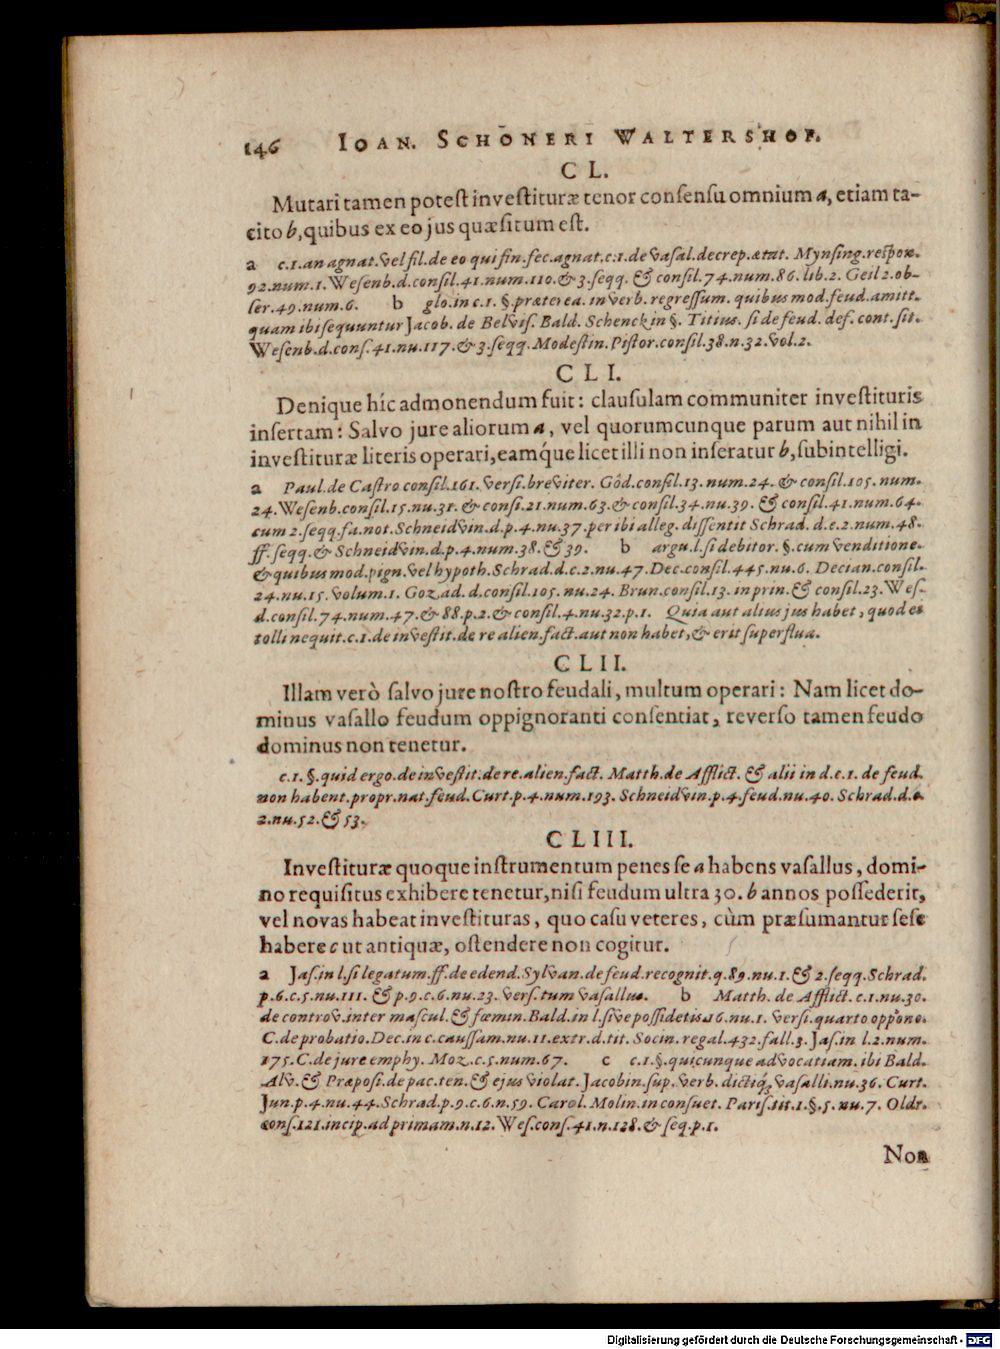 146 IOAN. SCHÖNERI WALTERSHOF.
CL.
Mutari tamen potest investituræ tenor consensu omnium a, etiam ta-
cito b, quibus ex eo jus quæsitum est.
a c.1. an agnat. vel fil. de eo qui fin. fec. agnat. c.1. de vasal. decrep. ætat. Mynsing. respon.
92. num. 1. Wesenb. d. consil. 41. num. 110. & 3. seqq. & consil. 74. num. 86. lib. 2. Geil 2. ob-
ser. 49. num. 6. b glo. in c.1. §. præterea. in verb. regressum. quibus mod. feud. amitt.
quam ibi sequuntur Jacob. de Belvis. Bald. Schenck in §. Titius. si de feud. def. cont. sit.
Wesenb. d. cons. 41. nu. 117. & 3. seqq. Modestin. Pistor. consil. 38. n. 32. vol. 2.
CLI.
Denique híc admonendum fuit: clausulam communiter investituris
insertam: Salvo jure aliorum a, vel quorumcunque parum aut nihil in
investituræ literis operari, eamq́ue licet illi non inseratur b, subintelligi.
a Paul. de Castro consil. 161. versi. breviter. Göd. consil. 13. num. 24. & consil. 105. num.
24. Wesenb. consil. 15. nu. 31. & consi. 21. num. 63. & consil. 34. nu. 39. & consil. 41. num. 64.
cum 2. seqq. fa. not. Schneidvin. d. p. 4. nu. 37. per ibi alleg. dissentit Schrad. d. c. 2. num. 48.
ff. seqq. & Schneidvin. d. p. 4. num. 38. & 39. b argu. l. si debitor. §. cum venditione.
& quibus mod. pign. vel hypoth. Schrad. d. c. 2. nu. 47. Dec. consil. 445. nu. 6. Decian. consil.
24. nu. 15. volum. 1. Gozad. d. consil. 105. nu. 24. Brun. consil. 13. in prin. & consil. 23. Wes.
d. consil. 74. num. 47. & 88. p. 2. & consil. 4. nu. 32. p. 1. Quia aut alius jus habet, quod ei
tolli nequit. c.1. de investit. de re alien. fact. aut non habet, & erit superflua.
CLII.
Illam verò salvo jure nostro feudali, multum operari: Nam licet do-
minus vasallo feudum oppignoranti consentiat, reverso tamen feudo
dominus non tenetur.
c.1. §. quid ergo. de investit. de re. alien. fact. Matth. de Afflict. & alii in d. c. 1. de feud.
non habent. propr. nat. feud. Curt. p. 4. num. 193. Schneidvin. p. 4. feud. nu. 40. Schrad. d. c.
2. nu. 52. & 53.
CLIII.
Investituræ quoque instrumentum penes se a habens vasallus, domi-
no requisitus exhibere tenetur, nisi feudum ultra 30. b annos possederit,
vel novas habeat investituras, quo casu veteres, cùm præsumantur sese
habere c ut antiquæ, ostendere non cogitur.
a Jas. in l. si legatum. ff. de edend. Sylvan. de feud. recognit. q. 89. nu. 1. & 2. seqq. Schrad.
p. 6. c. 5. nu. 111. & p. 9. c. 6. nu. 23. vers. tum vasallus. b Matth. de Afflict. c. 1. nu. 30.
de controv. inter mascul. & fœmin. Bald. in l. sive possidetis. 16. nu. 1. versi. quarto oppono.
C. de probatio. Dec. in c. caussam. nu. 11. extr. d. tit. Socin. regal. 432. fall. 3. Jas. in l. 2. num.
175. C. de jure emphy. Moz. c. 5. num. 67. c c.1. §. quicunque advocatiam. ibi Bald.
Alv. & Præposi. de pac. ten. & ejus violat. Jacobin. sup. verb. dictiq́; vasalli. nu. 36. Curt.
Jun. p. 4. nu. 44. Schrad. p. 9. c. 6. n. 59. Carol. Molin. in consuet. Paris. tit. 1. §. 5. nu. 7. Oldr.
cons. 121. incip. ad primam. n. 12. Wes. cons. 41. n. 128. & seq. p. 1.
Non
Digitalisierung gefördert durch die Deutsche Forschungsgemeinschaft - DFG